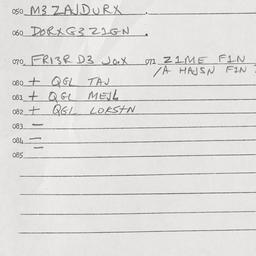 050 M3 ZAJDURX .
060 DORXG3 Z1GN .
070 FR13R D3 JaX 071 Z1ME F1N
/A HAJSN F1N
080 + QGL TAJ
081 + QGL MEJL
082 + QGL LORSTN
083 —
084 =
085